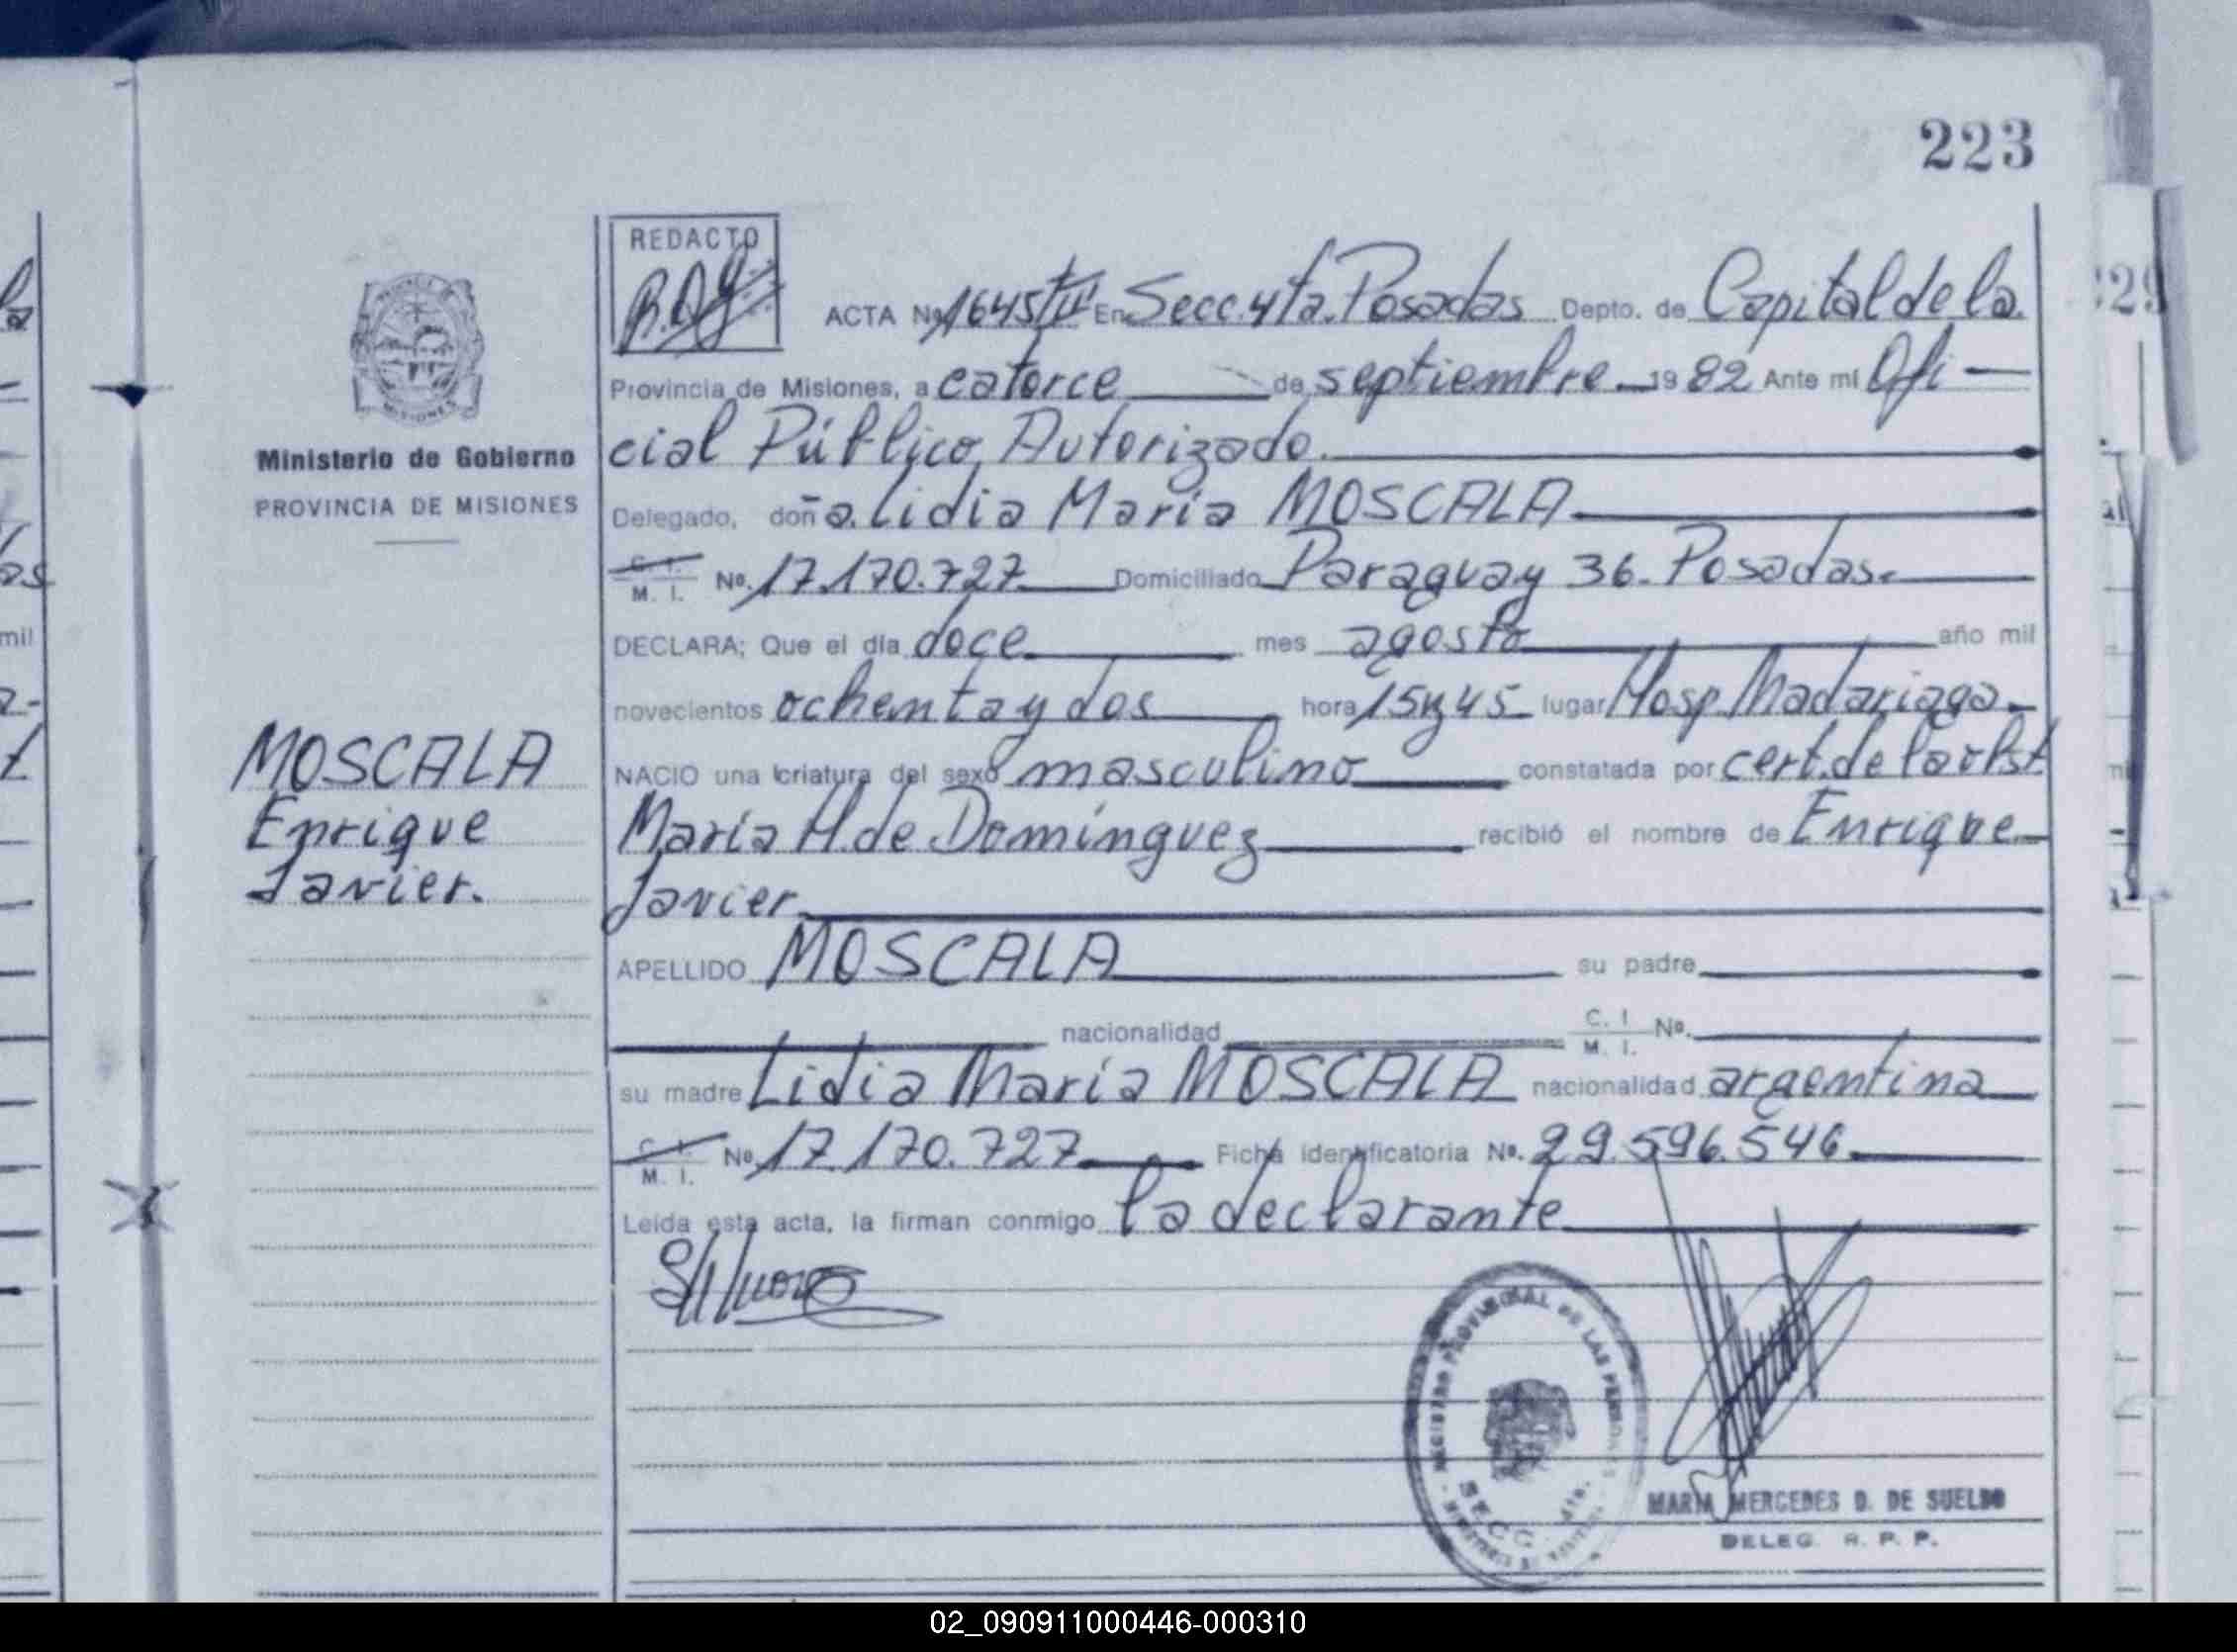 223
REDACTO
ACTA Nº 1645 En Secc. 4ta. Posadas Depto. de Capital de la
Provincia de Misiones, a catorce de septiembre 19 82 Ante mi Ofi
Ministerio de Gobierno
cial Público Autorizado.
PROVINCIA DE MISIONES
Delegado, doña. Lidia María MOSCALA
C. I.
M. I. Nº. 17.170.727 Domiciliado Paraguay 36. Posadas.
DECLARA; Que el día doce mes agosto año mil
novecientos ochenta y dos hora 15 y 45 lugar Hosp. Madariaga
MOSCALA
NACIO una criatura del sexo masculino constatada por cert. de la obst.
Enrique
María H. de Domínguez recibió el nombre de Enrique
Javier.
Javier
APELLIDO MOSCALA su padre
nacionalidad C. I. M. I. Nº.
su madre Lidia María MOSCALA nacionalidad argentina
C. I.
M. I. Nº 17.170.727 Ficha identificatoria Nº. 29.596.546
Leída esta acta, la firman conmigo la declarante
REGISTRO PROVINCIAL DE LAS PERSONAS
SECC. 4ta.
MARIA MERCEDES D. DE SUELDO
DELEG. R. P. P.
02_090911000446-000310